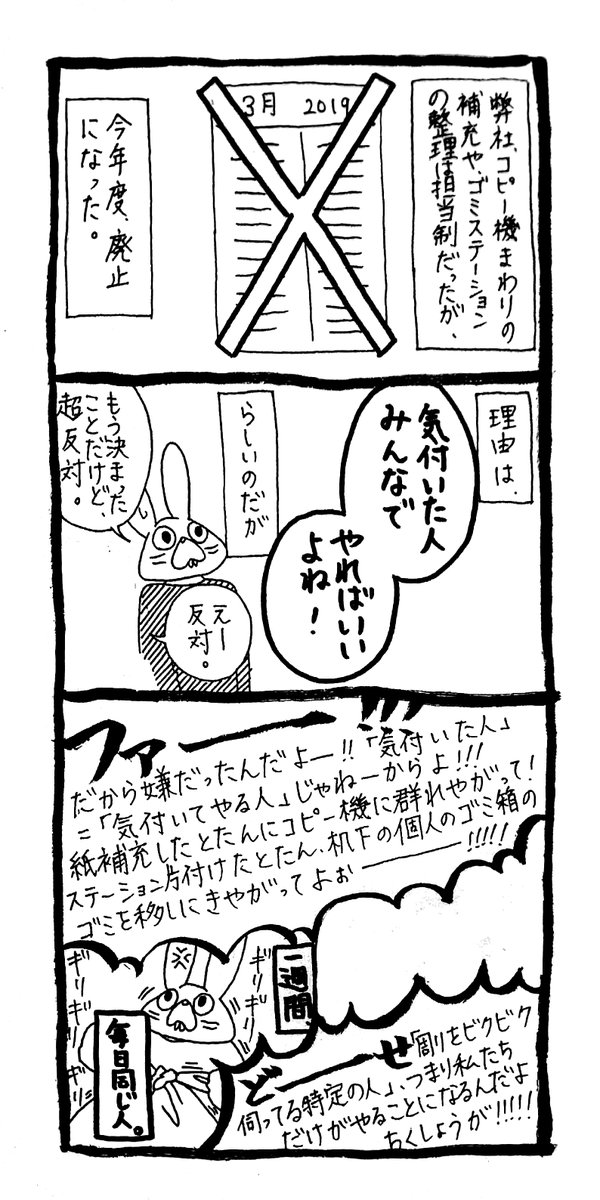 弊社、コピー機まわりの
補充や、ゴミステーション
の整理は担当制だったが、
3月 2019
今年度、廃止
になった。
理由は、
気付いた人
みんなで
やればいい
よね！
らしいのだが
もう決まった
ことだけど、
超反対。
えー
反対。
ファー――!!!
だから嫌だったんだよー!!「気付いた人」
=「気付いてやる人」じゃねーからよ!!!
紙補充したとたんにコピー機に群れやがって!
ステーション片付けたとたん、机下の個人のゴミ箱の
ゴミを移しにきやがってよぉ――――!!!!!
一週間、
ギリギリギリ
ギリギリギリギリ
毎日同じ人。
どーーーせ「周りをビクビク
伺ってる特定の人」、つまり私たち
だけがやることになるんだよ
ちくしょうが!!!!!